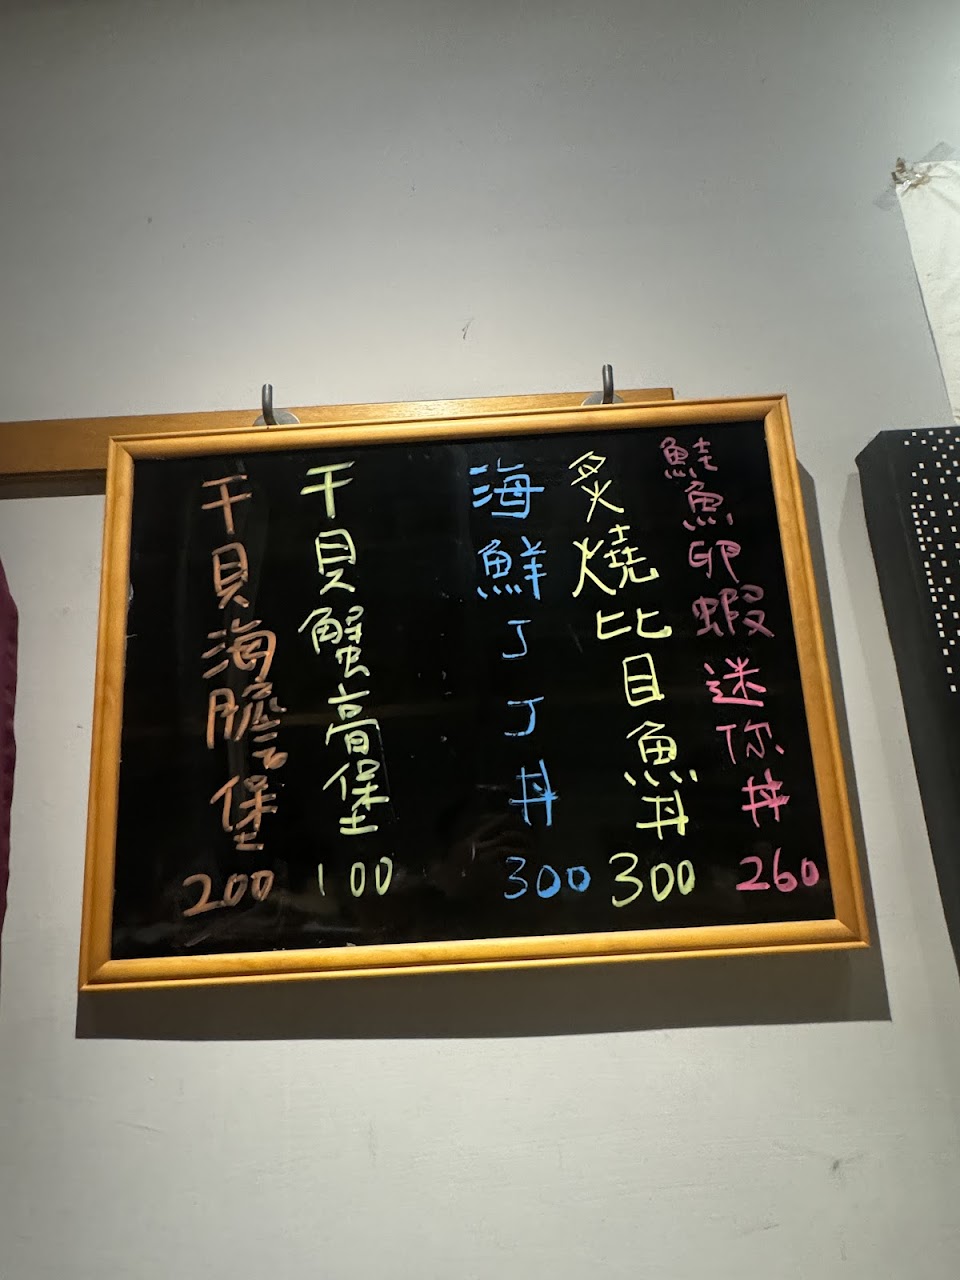 鮭魚卵蝦迷你丼 260
炙燒比目魚丼 300
海鮮丁丁丼 300
干貝蟹膏堡 100
干貝海膽堡 200